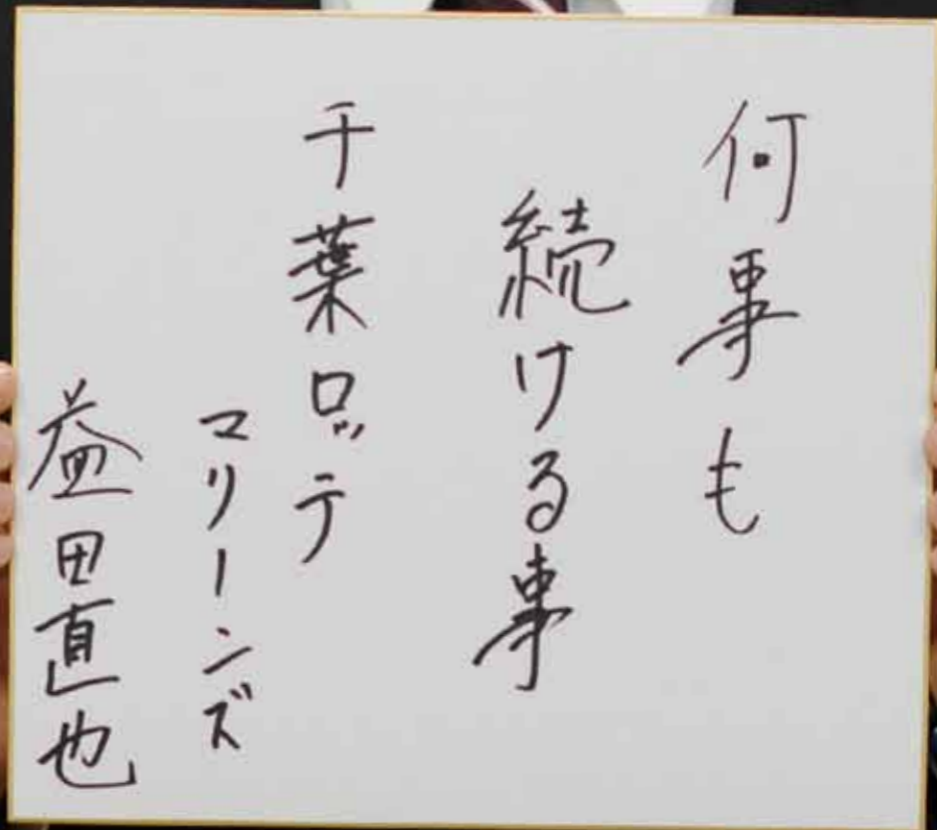 何事も
続ける事
千葉ロッテ
マリーンズ
益田直也